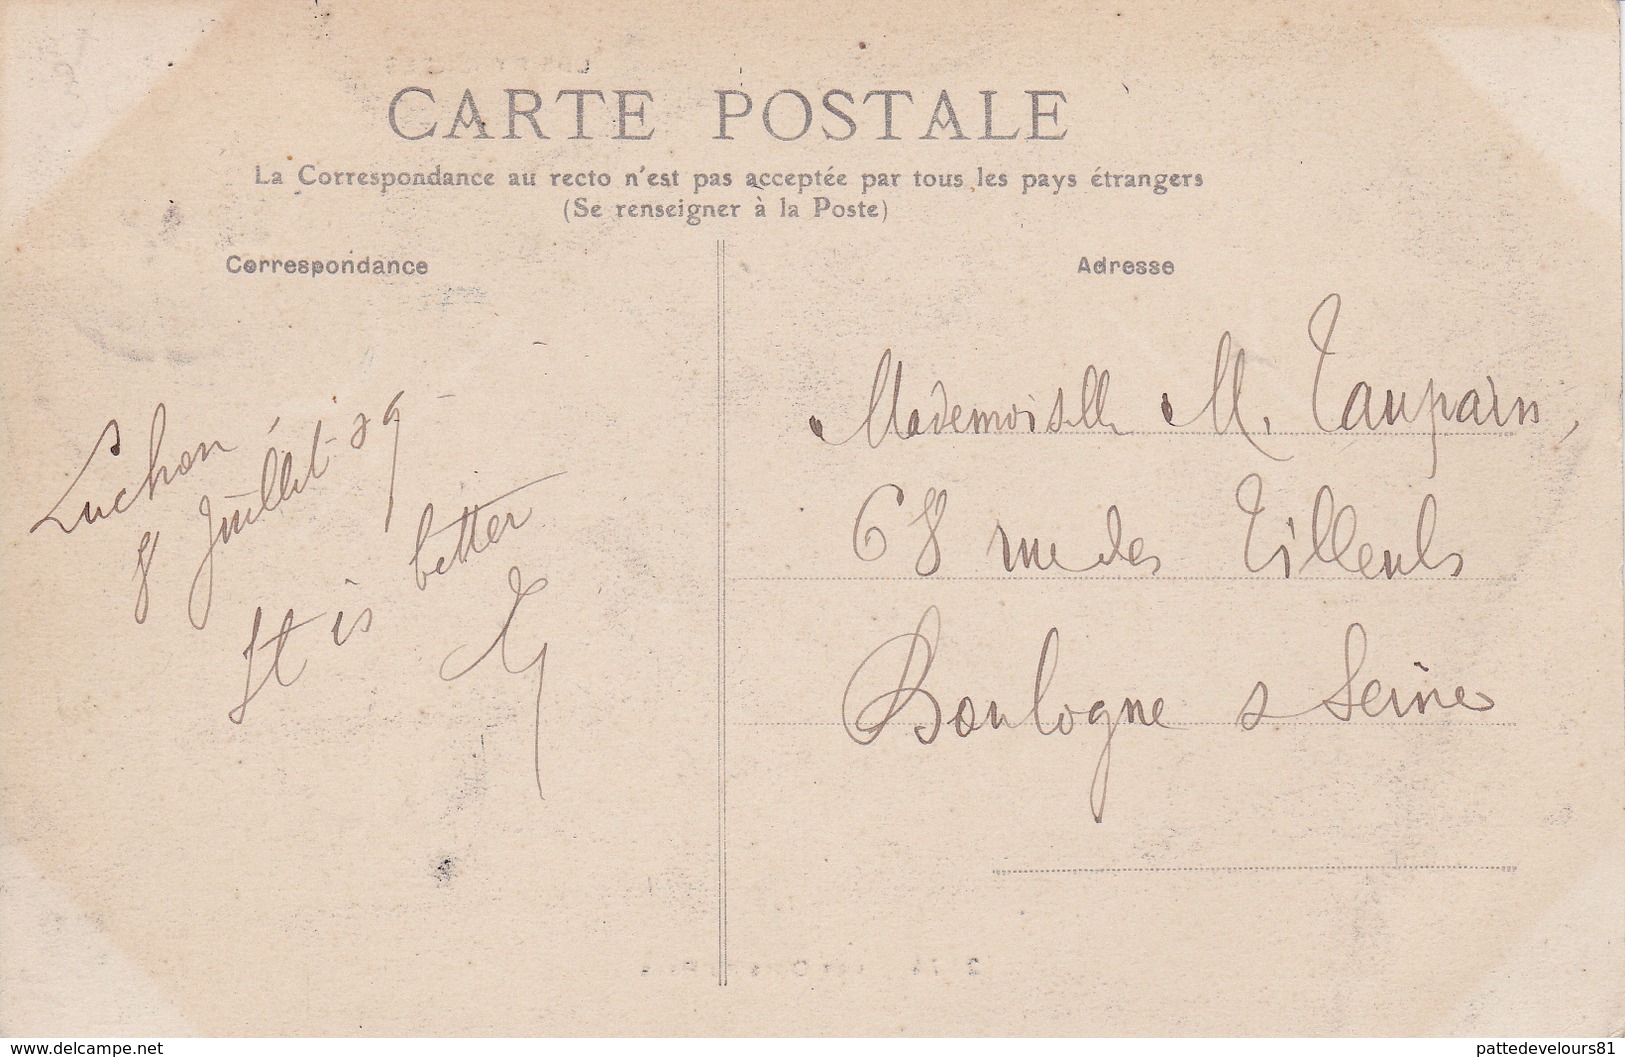 CARTE POSTALE
La Correspondance au recto n'est pas acceptée par tous les pays étrangers
(Se renseigner à la Poste)
Correspondance
Adresse
Luchon
8 Juillet - 09
It is better
Mademoiselle M. Tauparn,
68 rue des Tilleuls
Boulogne s Seine
www.delcampe.net
pattedevelours81